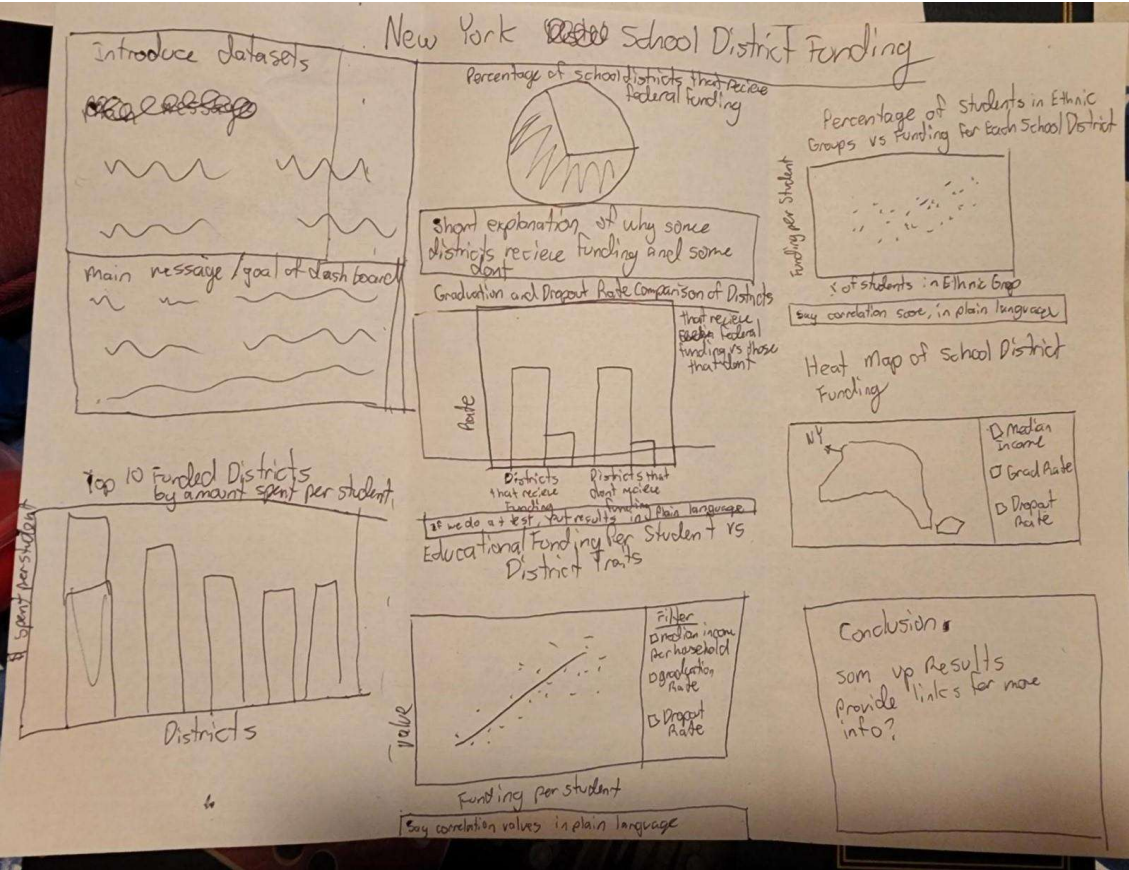 New York School District Funding
Introduce datasets
Main message/goal of dashboard
Top 10 Funded Districts
by amount spent per student
$ spent per student
Districts
Percentage of school districts that recieve
federal funding
Short explanation of why some
districts recieve funding and some
dont
Graduation and Dropout Rate Comparison of Districts
that recieve
Federal
funding vs those
that dont
Rate
Districts
that recieve
Funding
Districts that
dont recieve
funding
if we do a t test, put results in plain language
Educational Funding Per Student vs
District Traits
Value
Filter
median income
Per household
graduation
Rate
Dropout
Rate
Funding per student
Say correlation values in plain language
Percentage of students in Ethnic
Groups vs Funding for Each School District
Funding per Student
% of students in Ethnic Group
Say correlation score, in plain language
Heat Map of School District
Funding
NY
Median
Income
Grad Rate
Dropout
Rate
Conclusion
sum up Results
provide links for more
info?